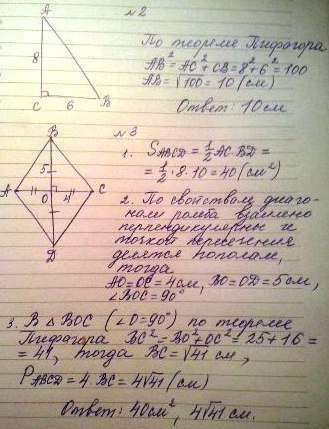 №2
A
8
C
6
B
По теореме Пифагора
AB² = AC² + CB = 8² + 6² = 100
AB = √100 = 10 (см)
Ответ: 10 см
№3
B
5
A
O
4
C
D
1. SABCD = 1/2 AC·BD =
= 1/2 · 8 · 10 = 40 (см²)
2. По свойствам диаго-
нали ромба взаимно
перпендикулярны и
точкой пересечения
делятся пополам,
тогда
AO = OC = 4см, BO = OD = 5см,
∠BOC = 90°
3. В △ BOC (∠O = 90°) по теореме
Пифагора BC² = BO² + OC² = 25 + 16 =
= 41, тогда BC = √41 см,
PABCD = 4 · BC = 4√41 (см)
Ответ: 40см², 4√41 см.